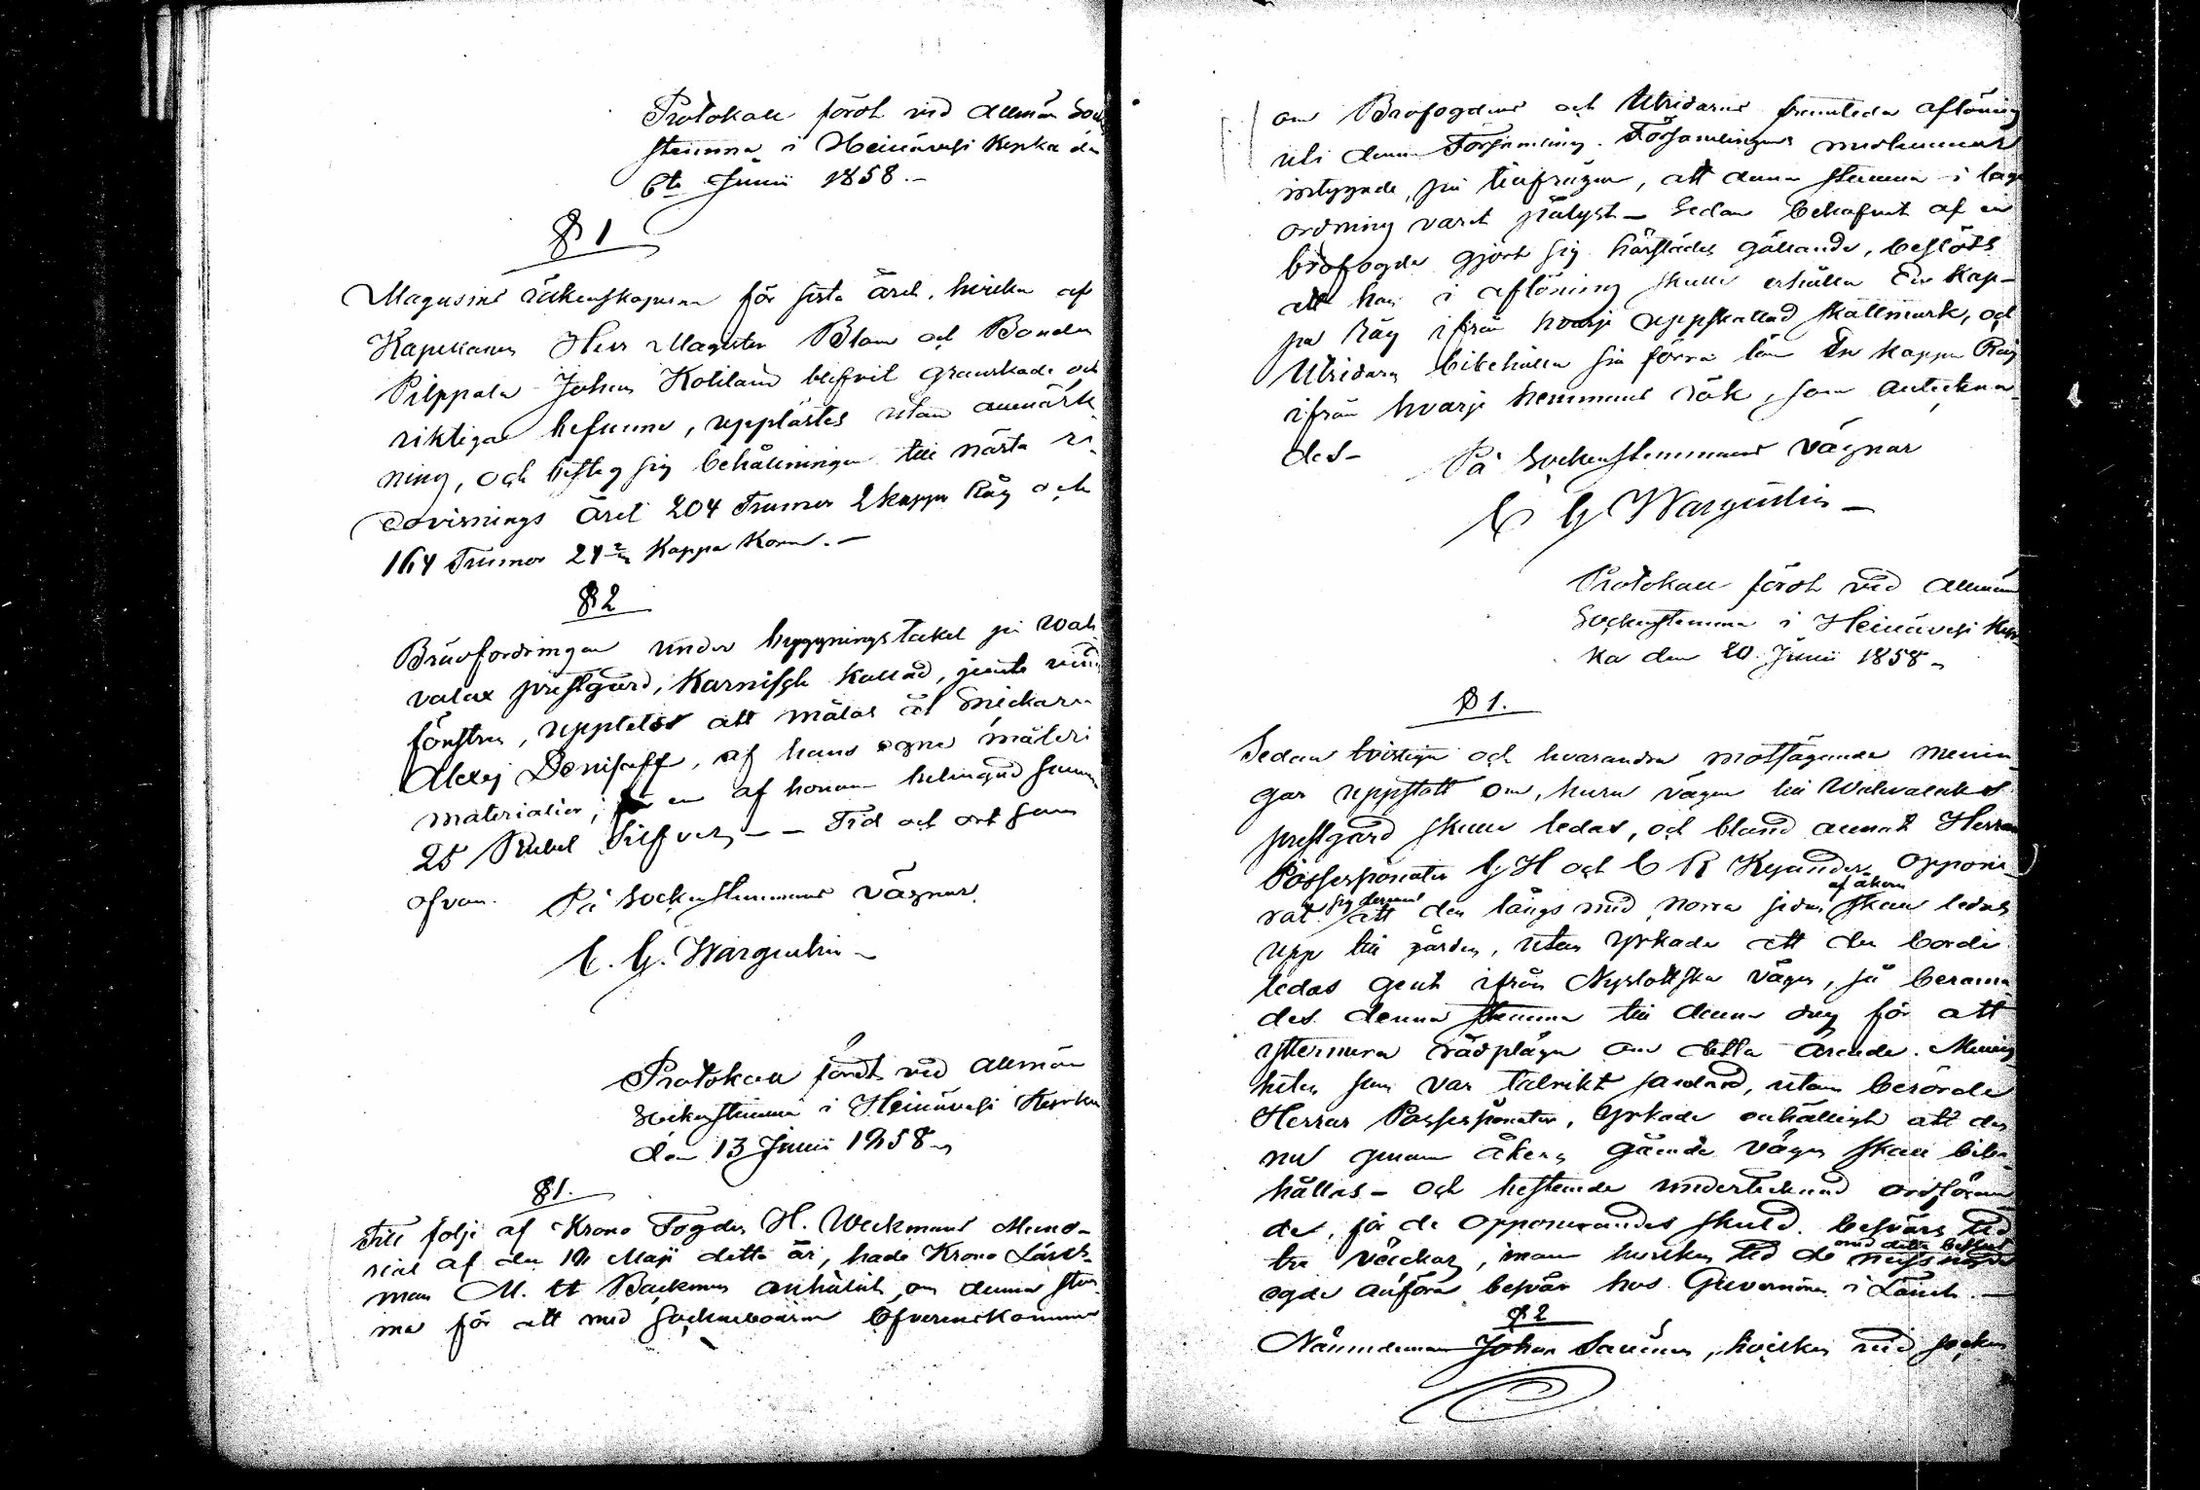 Protokoll fördt vid Allmän Sock
stemma i Heinävesi Kyrka den
6te Junii 1858.-
§ 1
Magasins räkenskaperne för sista året, hvilka af
Kapellanen Herr Magister Blom och Bonden
Pilppala Johan Kohlain blifvit granskade och
riktiga befunne, upplästes utan anmärk-
ning, och besteg sig behållningen till nästa re-
dovisnings året 204 Tunnor 2 kappa Råg och
164 Tunnor 24 Kappa Korn.-
§ 2
Brädfordringen under byggnings taket på Wah
valax prestgård, Karnisch kallad, jemte
fönstren, uppläts att målas åt Snickaren
Alexej Denisoff, af hans egna måleri
materialier, för en af honom betingad summa
25 Rubel Silfver, - - Tid och ort som
ofvan. På Sockenstemmans vägnar
C. G. Wargentin -
Protokoll fördt vid Allmän
Sockenstemma i Heinävesi Kyrka
den 13 Junii 1858 -
§ 1.
Till följe af Krono Fogden H. Weckmans Memo-
rial af den 12 Maji detta år, hade Krono Läns-
man M. Backman anhållit, om denna stem
ma för att med Socknenboarne öfverenskomma
om Brofogdens och Utridarens framtida aflöning
uti denna Församling. Församlingens medlemmar
intygade, på tillfrågan, att denna stemma i laga
ordning varit pålyst - Sedan behofvet af en
brofogde gjort sig härstädes gällande, beslöts
att han i aflöning skulle erhålla En Kap-
pa Råg ifrån hvarje uppskattad skattmark, och
Utridaren bibehålla sin förra lön En kappa Råg
ifrån hvarje hemmans rök, som antecknar
des- På Sockenstemmans vägnar
C G Wargentin -
Protokoll fördt vid Allmän
Sockenstemma i Heinävesi Kyr
ka den 20 Junii 1858 -
§ 1.
Sedan tvistiga och hvarandra motsägande menin-
gar uppstått om, huru vägen till Wahvalaks
prestgård skulle ledas, och bland annat Herrar
Possessionater G H och C R Kyander opponi-
rat sig deremot att den längs med norra sidan af åkern skulle ledas
upp till gården, utan yrkade att den borde
ledas gent ifrån Nyslottska vägen, så berama-
des denna stemma till denna dag för att
yttermera rådpläga om detta ärende. Menig
heten som var talrikt samlad, utom berörde
Herrar Possessionater, yrkade enhälligt att den
nu genom åkern gående vägen skall bibe-
hållas - och bestämde undertecknad ordföran
de, för de opponerandes skuld besvärs tid
tre veckor, inom hvilken tid de med detta beslut missnöjde
egde anföra besvär hos Guvernören i Länet. -
§ 2
Nämndeman Johan Savinen, hvilken vid socken